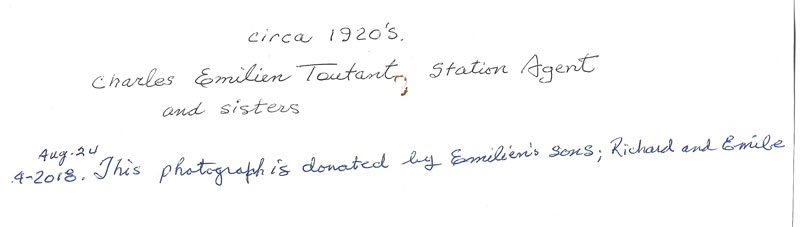 circa 1920's.
Charles Emilien Toutant, Station Agent
and sisters
Aug-24
4-2018. This photograph is donated by Emilien's sons; Richard and Emile